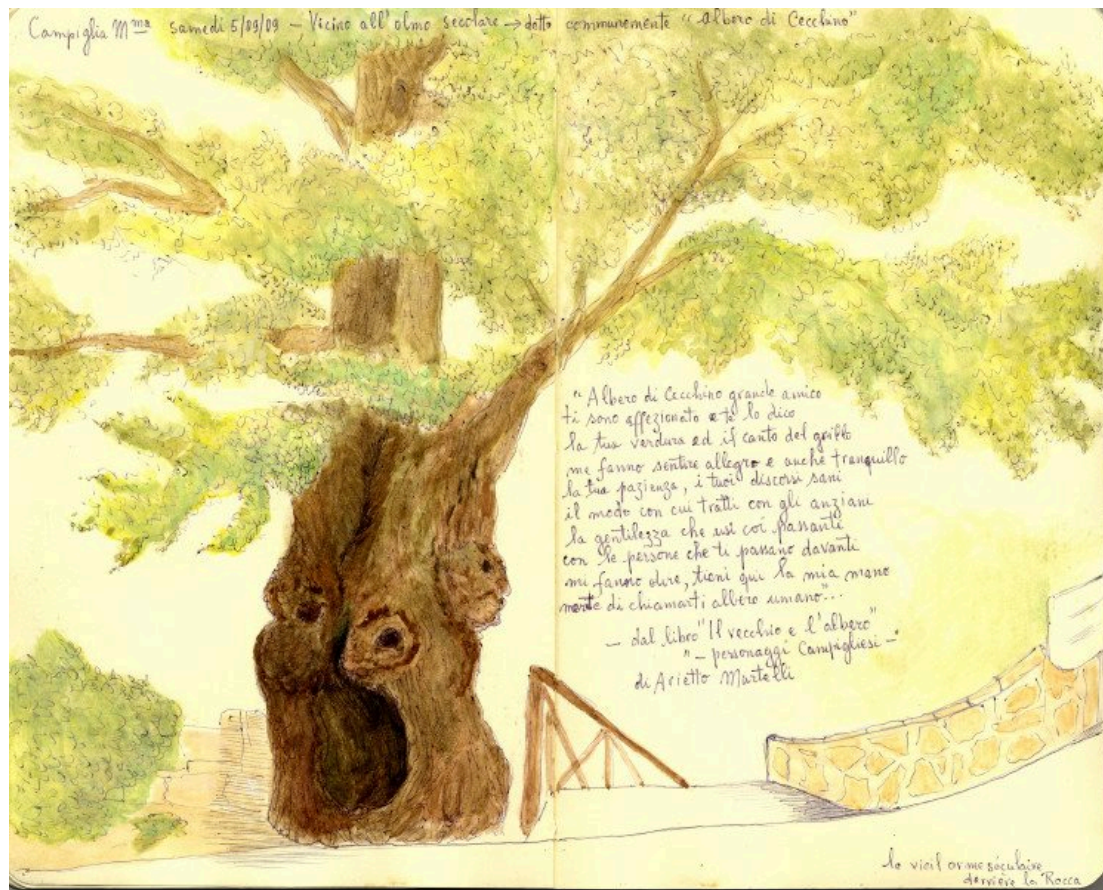 Campiglia Mma samedi 5/09/09 – Vicino all'olmo secolare → detto communemente "Albero di Cecchino"
"Albero di Cecchino grande amico
ti sono affezionato e te lo dico
la tua verdura ed il canto del grillo
me fanno sentire allegro e anche tranquillo
la tua pazienza, i tuoi discorsi sani
il modo con cui tratti con gli anziani
la gentilezza che usi coi passanti
con le persone che ti passano davanti
mi fanno dire, tieni qui la mia mano
di chiamarti albero umano"...
– dal libro "Il vecchio e l'albero"
"– personaggi Campigliesi –"
di Arietto Martelli
le vieil orme séculaire
derrière la Rocca